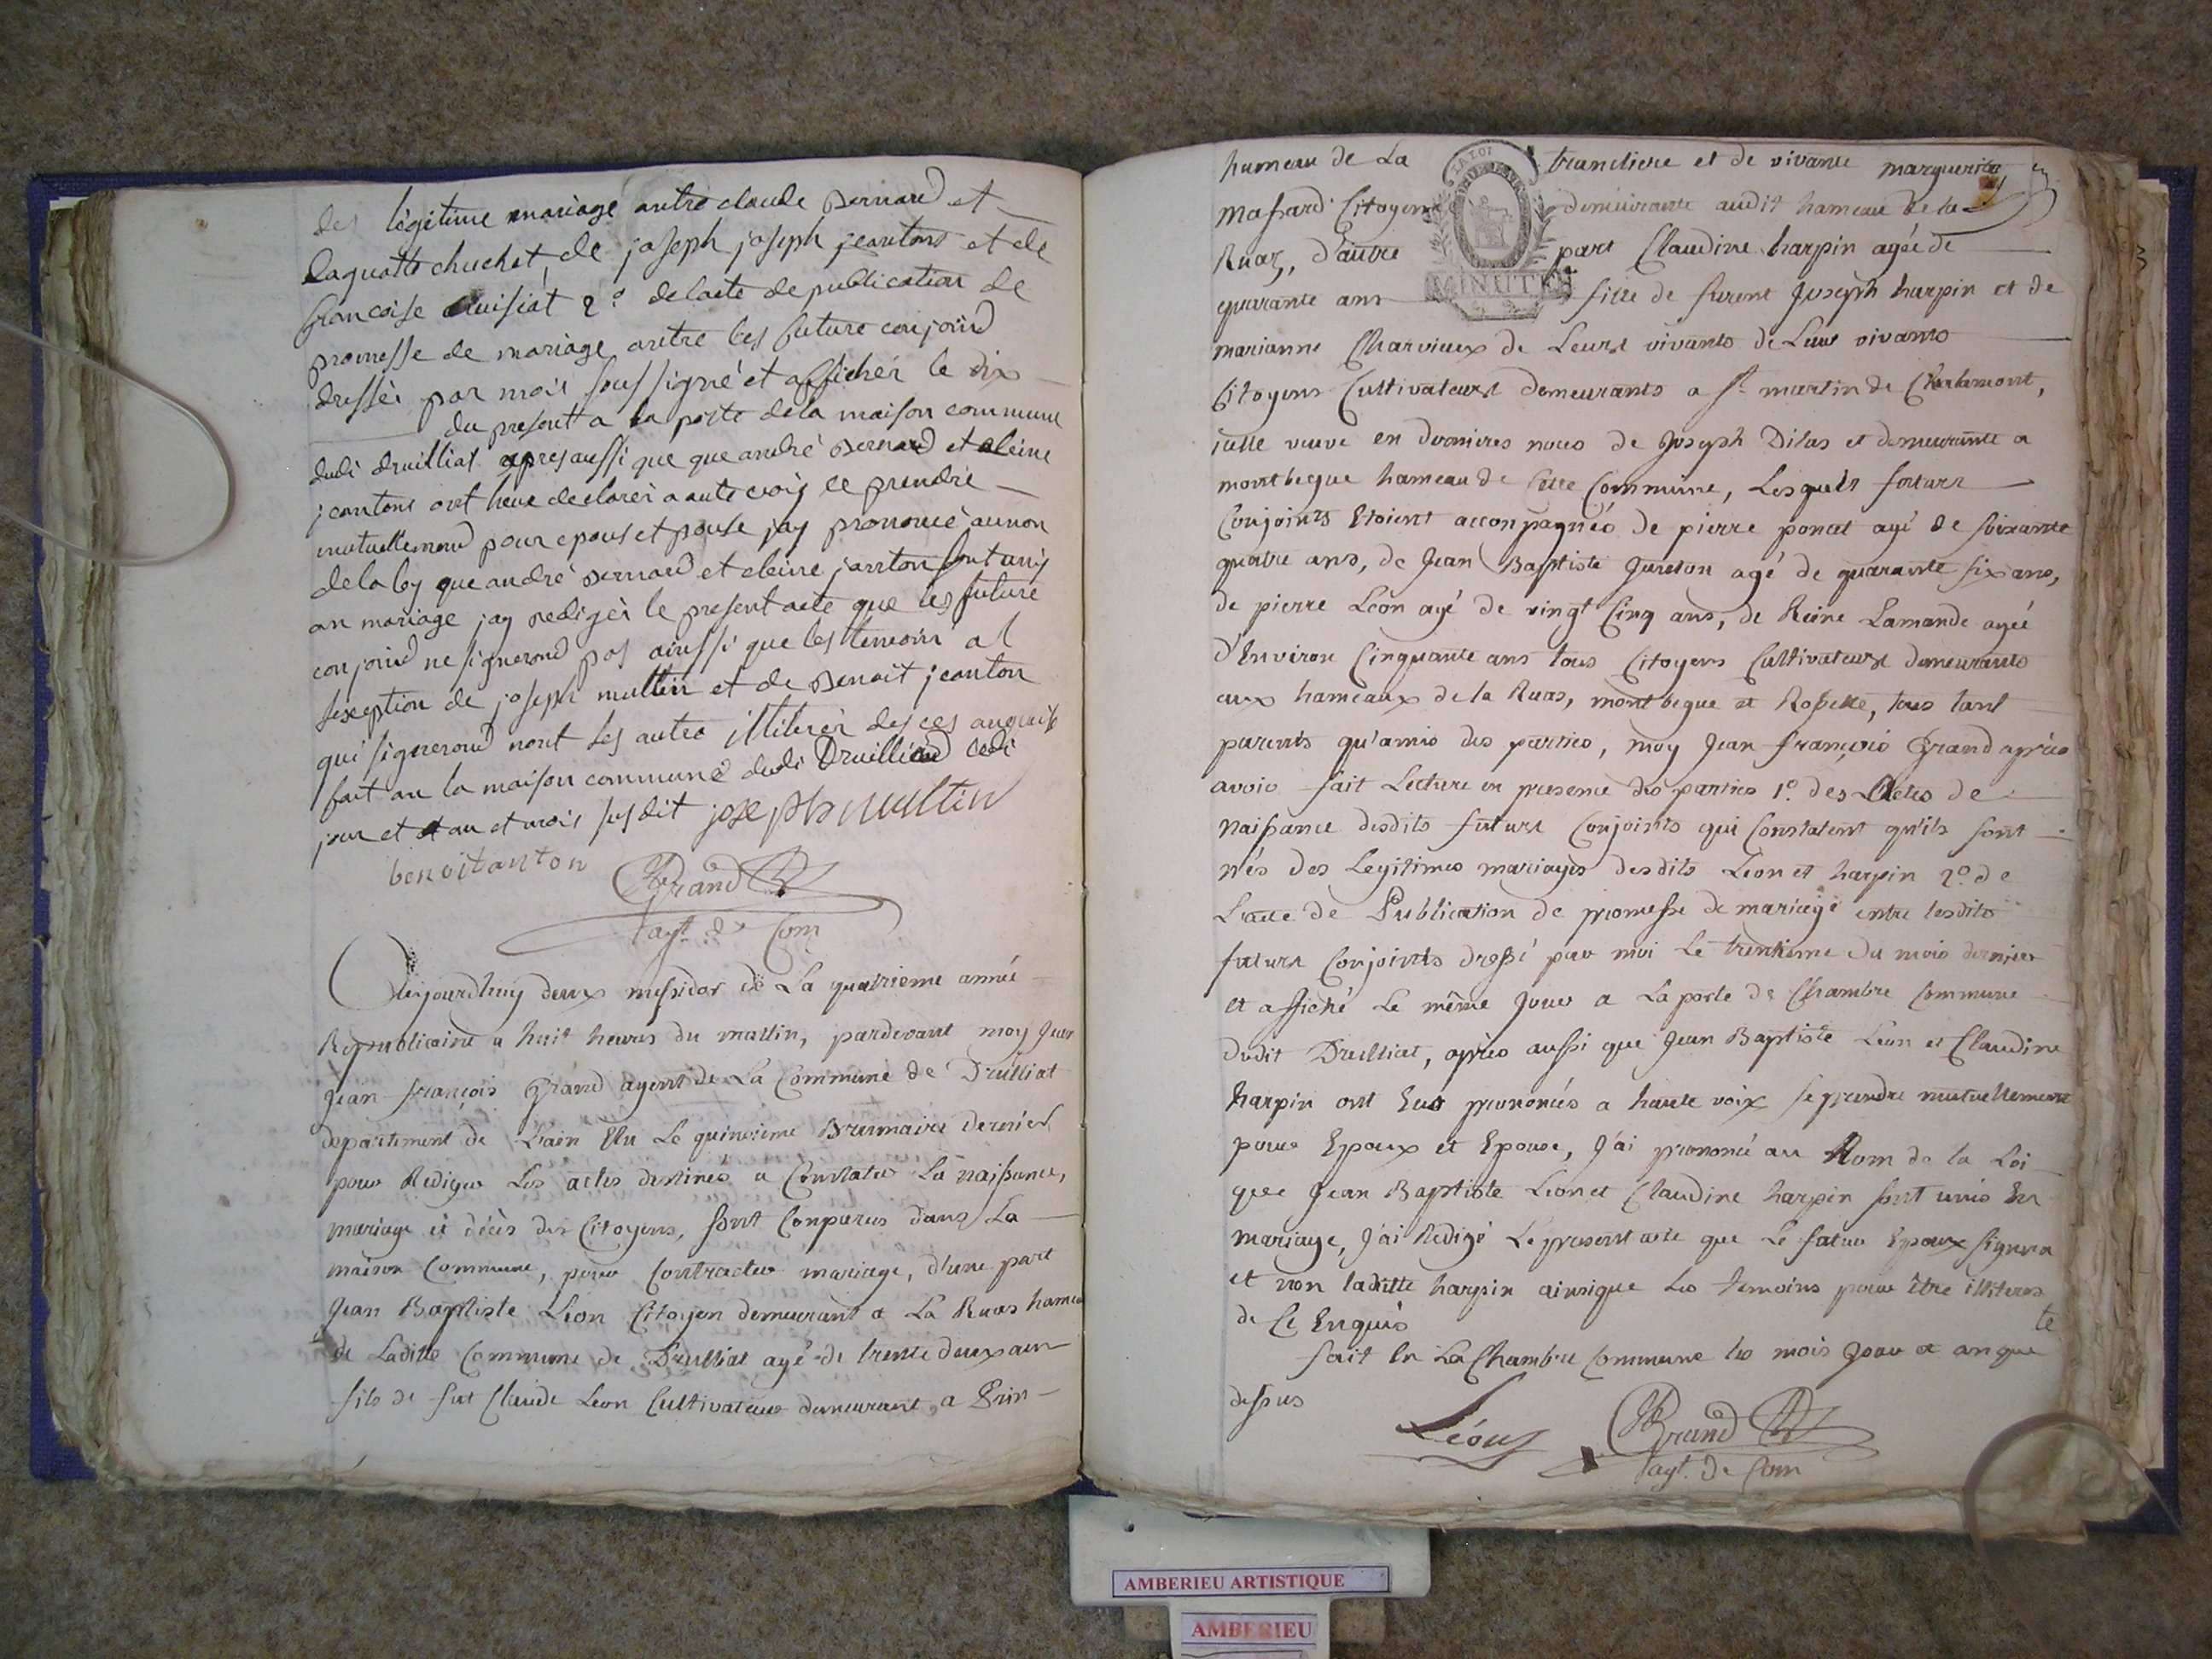 des légitime mariage antre claude Bernard et
Laguatte chuchet, de joseph joseph jeantons et de
francoise cuisiat 2.° delacte de publication de
promesse de mariage antre les future conjoind
dressér par mois sous signé et affichér le dix
du present a la porte dela maison commune
dudi druilliat apres aussi que que andré Bernard et cleine
jeantons ont heue declarér a aute voix ce prendre
mutuellemend pour epous et pouse jay prononcé aunon
dela loy que andré Bernard et cleine janton sont unis
an mariage jay redigér le present acte que les future
conjoind ne signerond pas ainssi que les temoin a l
sexeption de joseph multin et de Benoit jeanton
qui signerond nont les autre illiterér des ces anquis
fait an la maison commune dudi Druilliad ledi
jour et an et mois susdit joseph multin
benoitanton
Grand
agt de Com
Aujourdhuy deux messidor de La quatrieme année
Republicaine a huit heures du mattin, pardevant moy Jean
Jean françois Grand agent de La Commune de Druilliat
departement de L'ain Elu Le quinzieme Brumaire dernier
pour Rediger Les actes destinés a Constater La naissance,
mariage et décès des Citoyens, sont Comparus dans La
maison Commune, pour Contracter mariage, d'une part
Jean Baptiste Léon Citoyen demeurant a La Ruas hameau
de Ladite Commune de Druilliat agé de trente deux ans
fils de fut Claude Leon Cultivateur demeurant a
hameau de La trancliere et de vivante marguerite
Massard Citoyenne demeurante audit hameau de la
Ruaz, d'autre part Claudine harpin agée de
quarante ans fille de furent Joseph harpin et de
marianne Charvieux de Leurs vivants de Leur vivants
Citoyens Cultivateurs demeurants a St. martin de Chalamont,
icelle veuve en dernieres noces de Joseph Dilas et demeurante a
montbegue hameau de Cette Commune, Lesquels futurs
Conjoints Etoient acconpagnés de pierre poncet agé de soixante
quatre ans, de Jean Baptiste Jureton agé de quarante six ans,
de pierre Léon agé de vingt Cinq ans, de Reine Lamande agée
d'Environ Cinquante ans tous Citoyens Cultivateurs demeurants
aux hameaux de la Ruas, montbegue et Rossette, tous tant
parents qu'amis des parties, moy Jean françois Grand après
avoir fait Lecture en presence des parties 1.° des Actes de
Naissance desdits futurs Conjoints qui Constatent qu'ils sont
nés des Legitimes mariages desdits Léon et harpin 2.° de
L'acte de Publication de promesse de mariage entre lesdits
futurs Conjoints dressé par moi Le trentieme du mois dernier
et affiché Le même jour a La porte de Chambre Commune
dudit Druilliat, après aussi que Jean Baptiste Léon et Claudine
harpin ont Eus prononcés a haute voix se prendre mutuellement
pour Epoux et Epouse, J'ai prononcé au Nom de la Loi
que Jean Baptiste Leon et Claudine harpin sont unis En
mariage, J'ai Redigé Le present acte que Le futur Epoux signera
et non laditte harpin ainsique Les temoins pour être illiteres
de Ce Enquis te
fait En La Chambre Commune les mois Jour et an que
dessus
Léon Grand
agt. de Com
LA LOI
MINUTE
AMBERIEU ARTISTIQUE
AMBERIEU